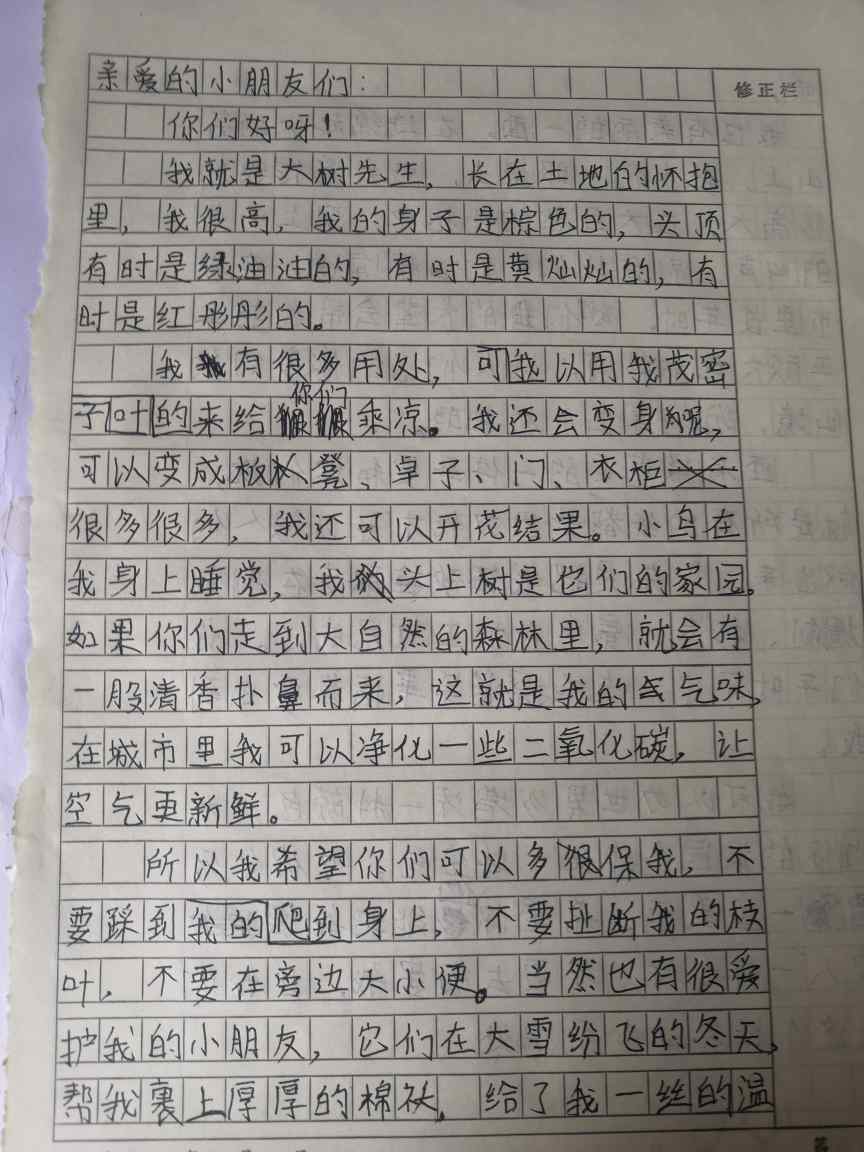 亲爱的小朋友们：
修正栏
你们好呀！
我就是大树先生，长在土地的怀抱
里，我很高，我的身子是棕色的，头顶
有时是绿油油的，有时是黄灿灿的，有
时是红彤彤的。
我有很多用处，可我以用我茂密
子叶的来给你们乘凉。我还会变身呢，
可以变成板凳、桌子、门、衣柜
很多很多，我还可以开花结果。小鸟在
我身上睡觉，我头上树是它们的家园。
如果你们走到大自然的森林里，就会有
一股清香扑鼻而来，这就是我的气味，
在城市里我可以净化一些二氧化碳，让
空气更新鲜。
所以我希望你们可以多保我，不
要踩到我的爬到身上，不要扯断我的枝
叶，不要在旁边大小便。当然也有很爱
护我的小朋友，它们在大雪纷飞的冬天，
帮我裹上厚厚的棉袄，给了我一丝的温